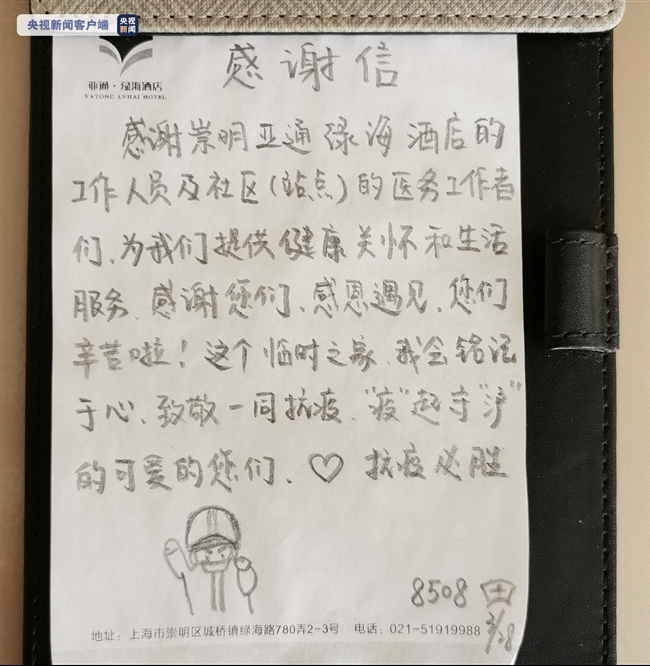 央视新闻客户端
央视
新闻
亚通·绿海酒店
YATONG LVHAI HOTEL
感谢信
感谢崇明亚通绿海酒店的
工作人员及社区(站点)的医务工作者
们、为我们提供健康关怀和生活
服务、感谢您们、感恩遇见、您们
辛苦啦！这个临时之家、我会铭记
于心、致敬一同抗疫、“疫”起守“沪”
的可爱的您们、♡ 抗疫必胜
8508 田
3/28
地址：上海市崇明区城桥镇绿海路780弄2-3号 电话：021-51919988